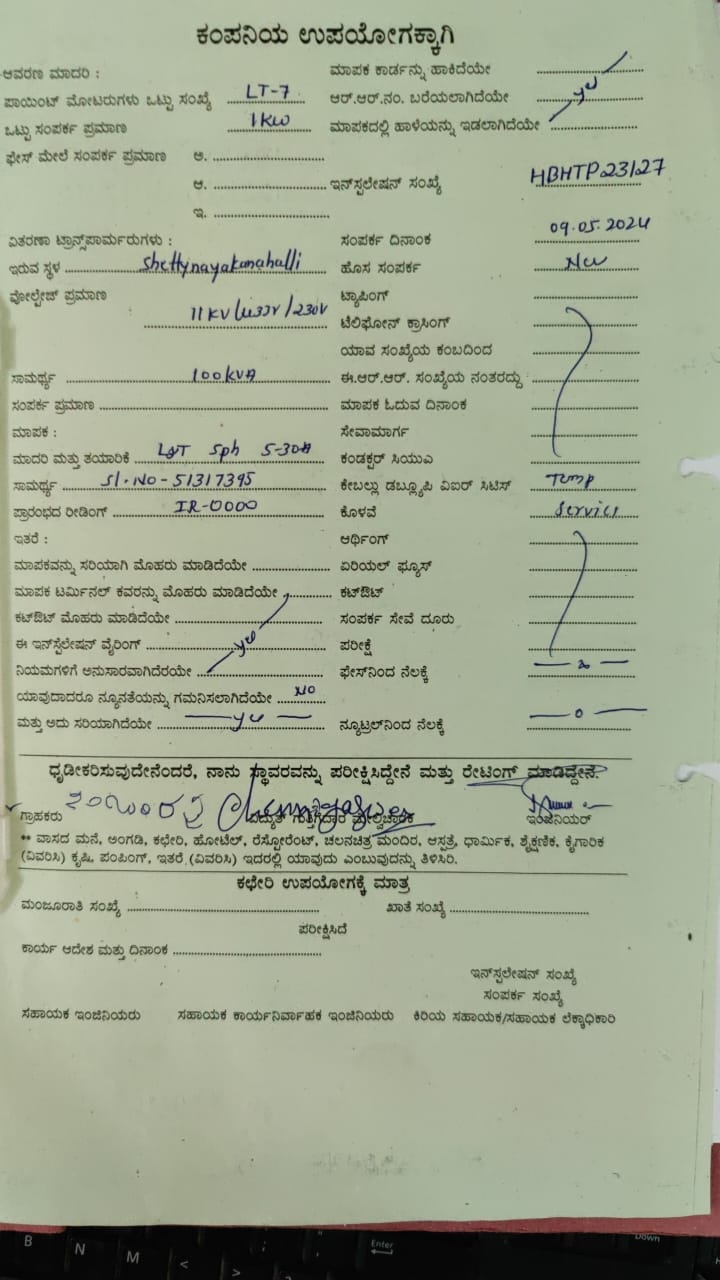 ಕಂಪನಿಯ ಉಪಯೋಗಕ್ಕಾಗಿ
ಆವರಣ ಮಾದರಿ :
ಪಾಯಿಂಟ್ ಮೋಟರುಗಳು ಒಟ್ಟು ಸಂಖ್ಯೆ LT-7
ಒಟ್ಟು ಸಂಪರ್ಕ ಪ್ರಮಾಣ 1KW
ಫೇಸ್ ಮೇಲೆ ಸಂಪರ್ಕ ಪ್ರಮಾಣ ಅ.
ಆ.
ಇ.
ವಿತರಣಾ ಟ್ರಾನ್ಸ್‌ಪಾರ್ಮರುಗಳು :
ಇರುವ ಸ್ಥಳ Shettynayakanahalli
ವೋಲ್ಟೇಜ್ ಪ್ರಮಾಣ
11KV/433V/230V
ಸಾಮರ್ಥ್ಯ 100KVA
ಸಂಪರ್ಕ ಪ್ರಮಾಣ
ಮಾಪಕ :
ಮಾದರಿ ಮತ್ತು ತಯಾರಿಕೆ L&T Sph 5-30A
ಸಾಮರ್ಥ್ಯ Sl.No-51317395
ಪ್ರಾರಂಭದ ರೀಡಿಂಗ್ IR-0000
ಇತರೆ :
ಮಾಪಕವನ್ನು ಸರಿಯಾಗಿ ಮೊಹರು ಮಾಡಿದೆಯೇ
ಮಾಪಕ ಟರ್ಮಿನಲ್ ಕವರನ್ನು ಮೊಹರು ಮಾಡಿದೆಯೇ
ಕಟ್‌ಔಟ್ ಮೊಹರು ಮಾಡಿದೆಯೇ
ಈ ಇನ್‌ಸ್ಟಲೇಷನ್ ವೈರಿಂಗ್ yes
ನಿಯಮಗಳಿಗೆ ಅನುಸಾರವಾಗಿದೆರಯೇ
ಯಾವುದಾದರೂ ನ್ಯೂನತೆಯನ್ನು ಗಮನಿಸಲಾಗಿದೆಯೇ NO
ಮತ್ತು ಅದು ಸರಿಯಾಗಿದೆಯೇ yes
ಮಾಪಕ ಕಾರ್ಡನ್ನು ಹಾಕಿದೆಯೇ
ಆರ್.ಆರ್.ನಂ. ಬರೆಯಲಾಗಿದೆಯೇ yes
ಮಾಪಕದಲ್ಲಿ ಹಾಳೆಯನ್ನು ಇಡಲಾಗಿದೆಯೇ
ಇನ್‌ಸ್ಟಲೇಷನ್ ಸಂಖ್ಯೆ HBHTP23127
ಸಂಪರ್ಕ ದಿನಾಂಕ 09.05.2024
ಹೊಸ ಸಂಪರ್ಕ New
ಟ್ಯಾಪಿಂಗ್
ಟೆಲಿಫೋನ್ ಕ್ರಾಸಿಂಗ್
ಯಾವ ಸಂಖ್ಯೆಯ ಕಂಬದಿಂದ
ಈ.ಆರ್.ಆರ್. ಸಂಖ್ಯೆಯ ನಂತರದ್ದು
ಮಾಪಕ ಓದುವ ದಿನಾಂಕ
ಸೇವಾಮಾರ್ಗ
ಕಂಡಕ್ಟರ್ ಸಿಯುಎ
ಕೇಬಲ್ಲು ಡಬ್ಲ್ಯೂಪಿ ವಿಐರ್ ಸಿಟಿಸ್ Temp
ಕೊಳವೆ Service
ಆರ್ಥಿಂಗ್
ಏರಿಯಲ್ ಫ್ಯೂಸ್
ಕಟ್‌ಔಟ್
ಸಂಪರ್ಕ ಸೇವೆ ದೂರು
ಪರೀಕ್ಷೆ
ಫೇಸ್‌ನಿಂದ ನೆಲಕ್ಕೆ
ನ್ಯೂಟ್ರಲ್‌ನಿಂದ ನೆಲಕ್ಕೆ 0
ಧೃಡೀಕರಿಸುವುದೇನೆಂದರೆ, ನಾನು ಸ್ಥಾವರವನ್ನು ಪರೀಕ್ಷಿಸಿದ್ದೇನೆ ಮತ್ತು ರೇಟಿಂಗ್ ಮಾಡಿದ್ದೇನೆ.
ಗ್ರಾಹಕರು ವಿದ್ಯುತ್ ಗುತ್ತಿಗೆದಾರ ಮೇಲ್ವಿಚಾರಕ ಇಂಜಿನಿಯರ್
** ವಾಸದ ಮನೆ, ಅಂಗಡಿ, ಕಛೇರಿ, ಹೋಟೆಲ್, ರೆಸ್ಟೋರೆಂಟ್, ಚಲನಚಿತ್ರ ಮಂದಿರ, ಆಸ್ಪತ್ರೆ, ಧಾರ್ಮಿಕ, ಶೈಕ್ಷಣಿಕ, ಕೈಗಾರಿಕ
(ವಿವರಿಸಿ) ಕೃಷಿ, ಪಂಪಿಂಗ್, ಇತರೆ (ವಿವರಿಸಿ) ಇದರಲ್ಲಿ ಯಾವುದು ಎಂಬುವುದನ್ನು ತಿಳಿಸಿರಿ.
ಕಛೇರಿ ಉಪಯೋಗಕ್ಕೆ ಮಾತ್ರ
ಮಂಜೂರಾತಿ ಸಂಖ್ಯೆ ಖಾತೆ ಸಂಖ್ಯೆ
ಪರೀಕ್ಷಿಸಿದೆ
ಕಾರ್ಯ ಆದೇಶ ಮತ್ತು ದಿನಾಂಕ
ಇನ್‌ಸ್ಟಲೇಷನ್ ಸಂಖ್ಯೆ
ಸಂಪರ್ಕ ಸಂಖ್ಯೆ
ಸಹಾಯಕ ಇಂಜಿನಿಯರು ಸಹಾಯಕ ಕಾರ್ಯನಿರ್ವಾಹಕ ಇಂಜಿನಿಯರು ಕಿರಿಯ ಸಹಾಯಕ/ಸಹಾಯಕ ಲೆಕ್ಕಾಧಿಕಾರಿ
B N M < > ; : Enter Down